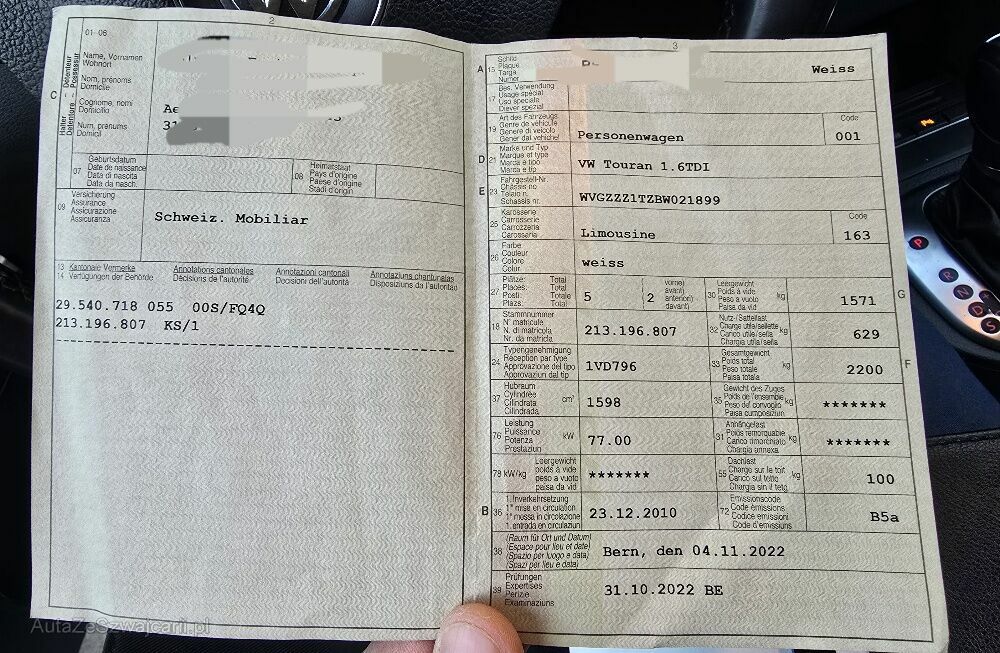 2
01-06
Name, Vornamen
Wohnort
Nom, prénoms
Domicile
Cognome, nomi
Domicilio
Num, prenums
Domicil
C
Halter – Détenteur
Detentore – Possessur
Ae
31
07
Geburtsdatum
Date de naissance
Data di nascita
Data da nasch.
08
Heimatstaat
Pays d'origine
Paese d'origine
Stadi d'origin
09
Versicherung
Assurance
Assicurazione
Assicuranza
Schweiz. Mobiliar
13 Kantonale Vermerke
14 Verfügungen der Behörde
Annotations cantonales
Décisions de l'autorité
Annotazioni cantonali
Decisioni dell'autorità
Annotaziuns chantunalas
Disposiziuns da l'autoritad
29.540.718 055 00S/FQ4Q
213.196.807 KS/1
3
A 15
Schild
Plaque
Targa
Numer
Weiss
17
Bes. Verwendung
Usage spécial
Uso speciale
Diever spezial
19
Art des Fahrzeugs
Genre de véhicule
Genere di veicolo
Gener dal vehichel
Personenwagen
Code
001
D 21
Marke und Typ
Marque et type
Marca e tipo
Marca e tip
VW Touran 1.6TDI
E 23
Fahrgestell-Nr.
Châssis no
Telaio n.
Schassis nr.
WVGZZZ1TZBW021899
25
Karosserie
Carrosserie
Carrozzeria
Carossaria
Limousine
Code
163
26
Farbe
Couleur
Colore
Colur
weiss
27
Plätze: Total
Places: Total
Posti: Totale
Plazs: Total
5
2
vorne)
avant)
anteriori)
davant)
30
Leergewicht
Poids à vide
Peso a vuoto
Paisa da vid
kg
1571
G
18
Stammnummer
N° matricule
N. di matricola
Nr. da matricla
213.196.807
32
Nutz-/Sattellast
Charge utile/sellette
Carico utile/sella
Chargia utila/sella
kg
629
24
Typengenehmigung
Réception par type
Approvazione del tipo
Approvaziun dal tip
1VD796
33
Gesamtgewicht
Poids total
Peso totale
Paisa totala
kg
2200
F
37
Hubraum
Cylindrée
Cilindrata
Cilindrada
cm³
1598
35
Gewicht des Zuges
Poids de l'ensemble
Peso del convoglio
Paisa cumposiziun
kg
*******
76
Leistung
Puissance
Potenza
Prestaziun
kW
77.00
31
Anhängelast
Poids remorquable
Carico rimorchiato
Chargia annexa
kg
*******
78 kW/kg
Leergewicht
poids à vide
peso a vuoto
paisa da vid
*******
55
Dachlast
Charge sur le toit
Carico sul tetto
Chargia sin il tetg
kg
100
B 36
1. Inverkehrsetzung
1re mise en circulation
1a messa in circolazione
1. entrada en circulaziun
23.12.2010
72
Emissionscode
Code émissions
Codice emissioni
Code d'emissiuns
B5a
38
(Raum für Ort und Datum)
(Espace pour lieu et date)
(Spazio per luogo e data)
(Spazi per lieu e data)
Bern, den 04.11.2022
39
Prüfungen
Expertises
Perizie
Examinaziuns
31.10.2022 BE
P
R
N
D
S
AutaZeSzwajcarii.pl